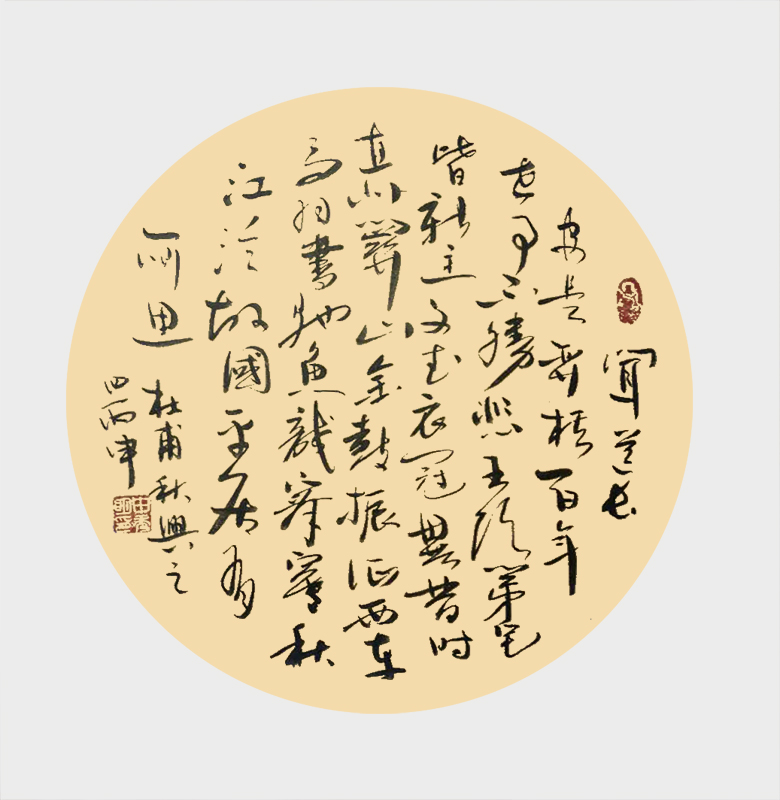 聞道長
安是弈棋百年
世事不勝悲王侯第宅
皆新主文武衣冠異昔时
直北關山金鼓振征西车
馬羽書馳魚龍寂寞秋
江冷故國平居有
所思
杜甫秋興八之
四丙申